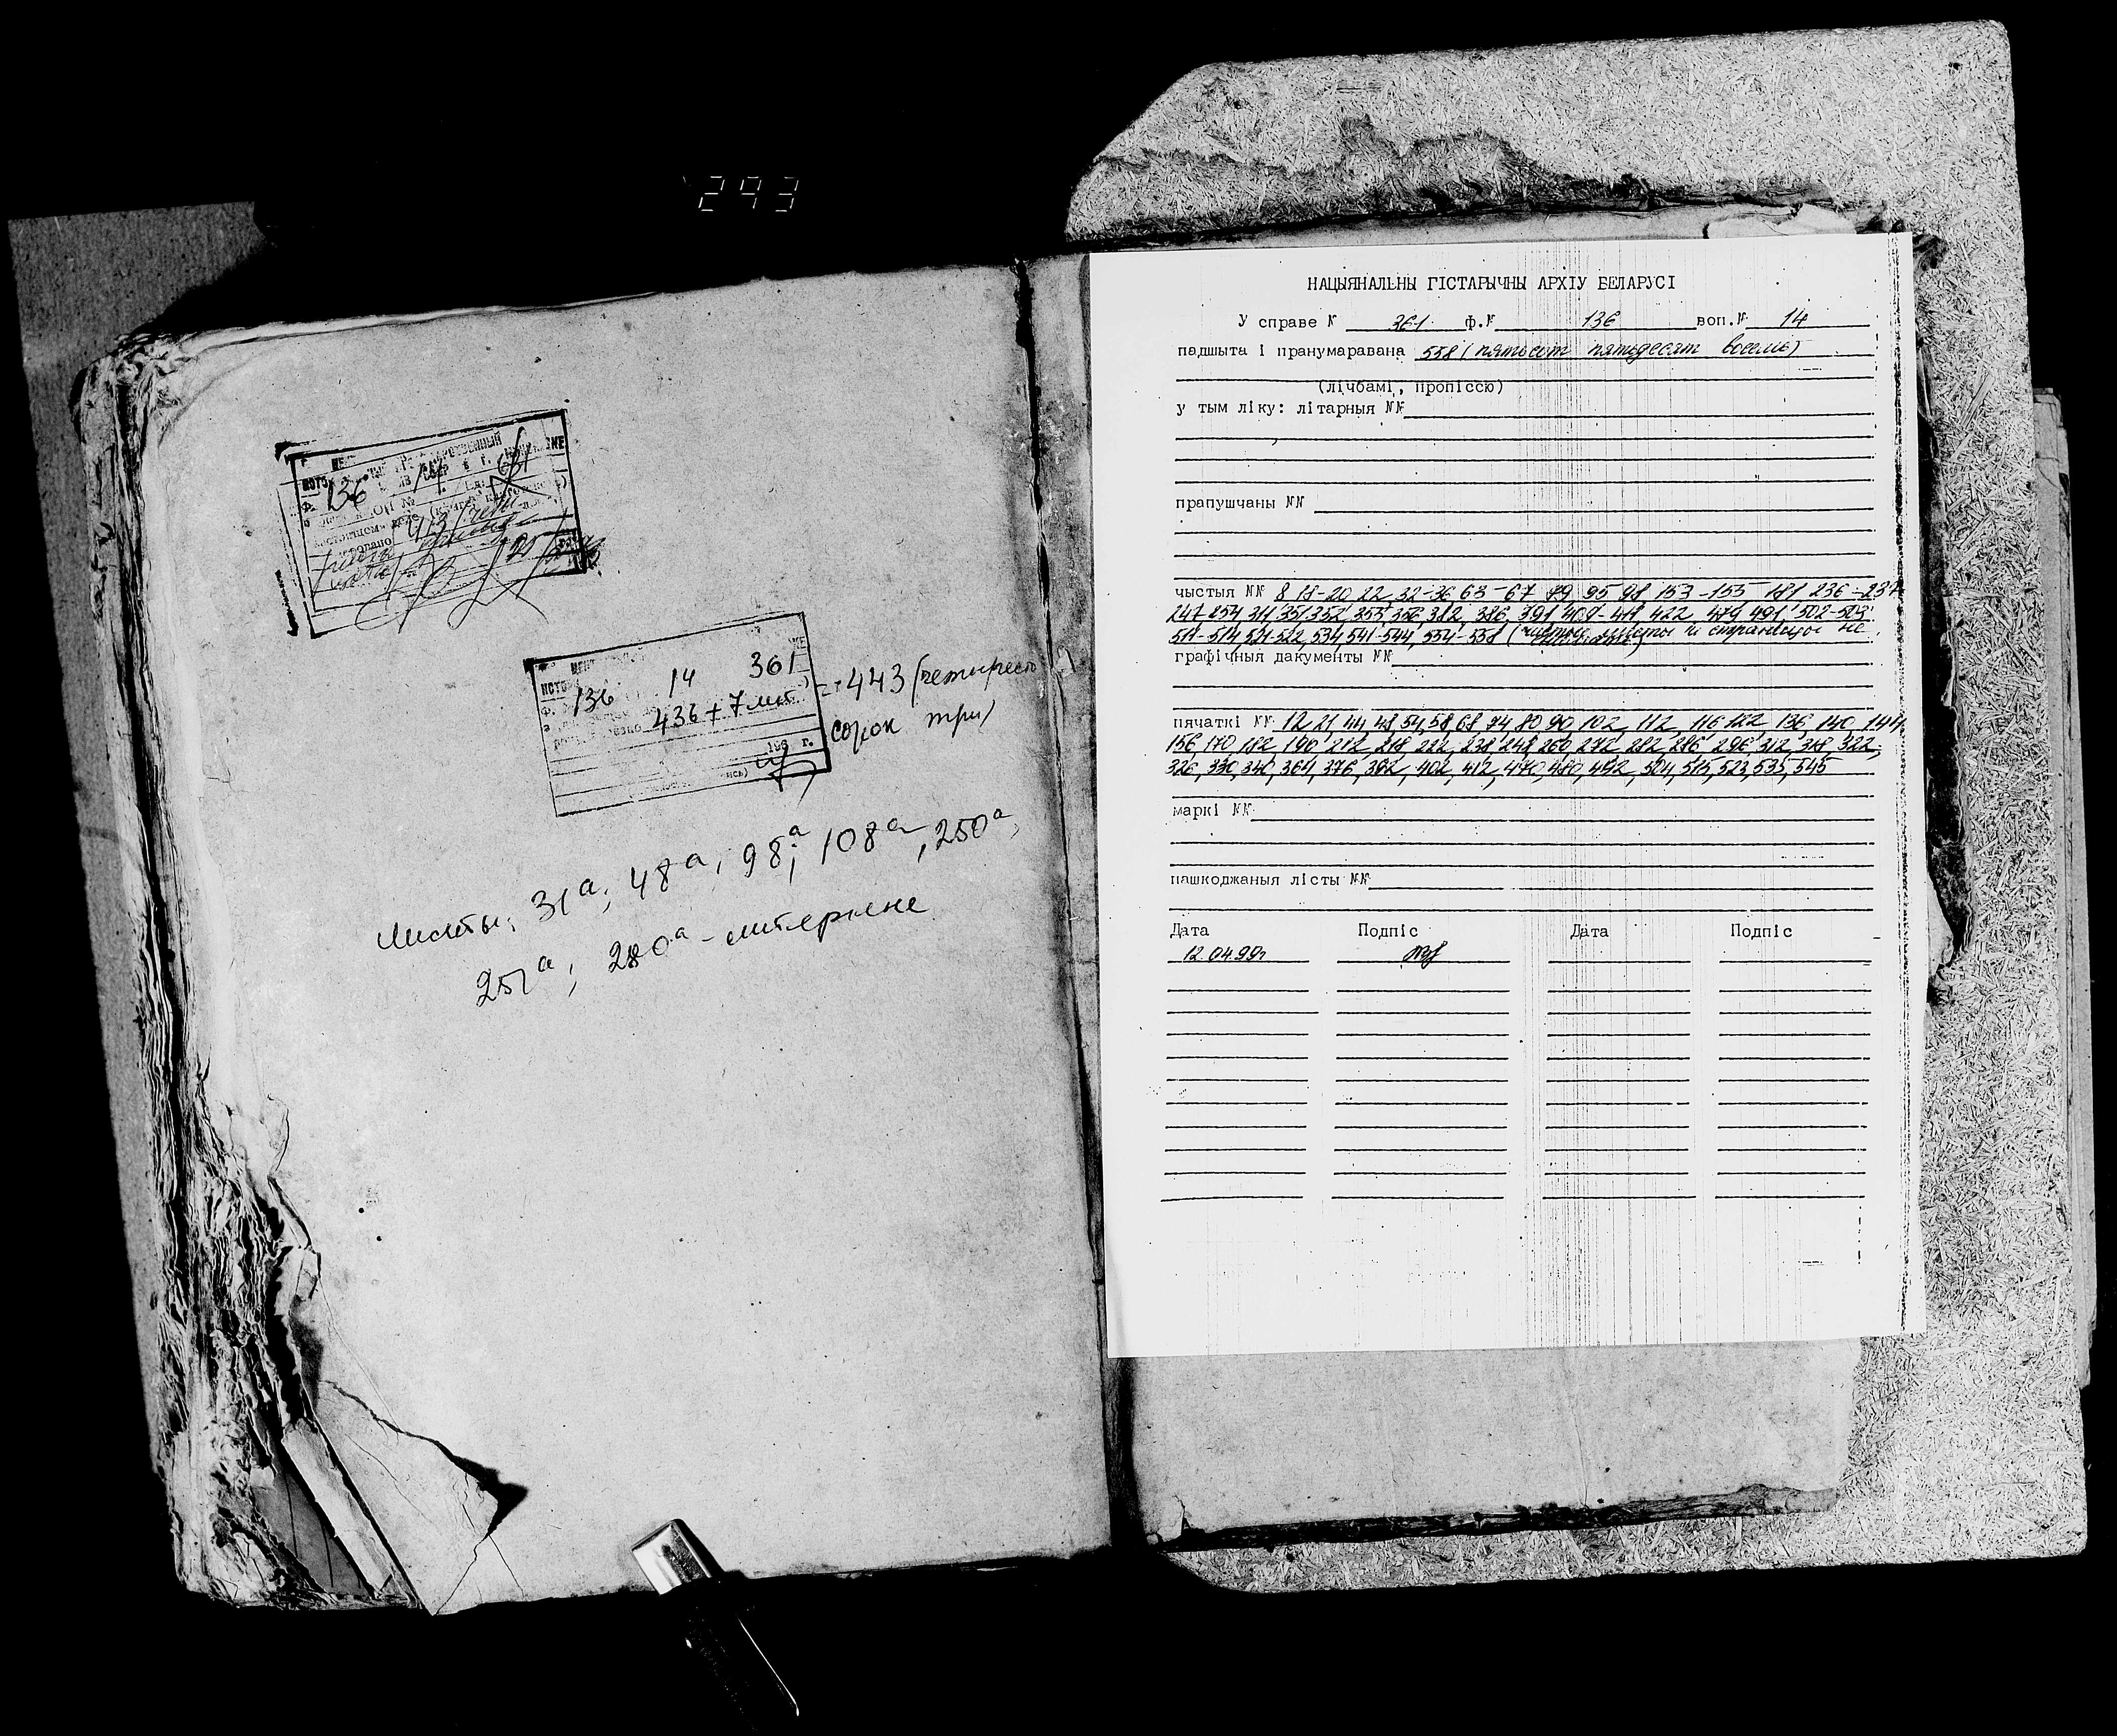 293
136 14 361
436 + 7 лит. = 443 (четыреста
сорок три)
г.
Листы: 31а; 48а; 98а; 108а, 250а,
251а; 280а - литерные
НАЦЫЯНАЛЬНЫ ГІСТАРЫЧНЫ АРХІУ БЕЛАРУСІ
У справе № 361 ф.№ 136 воп.№ 14
падшыта і пранумаравана 558 (пятьсот пятьдесят восемь)
(лічбамі, пропіссю)
у тым ліку: літарныя №№
прапушчаны №№
чыстыя №№ 8 18-20 22 32-36 63-67 79 95 98 153-155 181 236-237
247 254 311 351 352 353 356 382, 386, 391 409-411 422 479 491 502-503
511-514, 521-522, 534, 541-544, 554-558 (чистые листы и страницы не
графічныя дакументы №№
пячаткі №№ 12 21 44 48 54 58 68 74 80 90 102 112 116 122 136 140 144
156 170 182 190 212 218 222 238 248 260 272 282 286 296 312 318 322
326, 330, 340, 364, 376, 392, 402, 412, 470, 480, 492, 504, 515, 523, 535, 545
маркі №№
пашкоджаныя лісты №№
Дата Подпіс Дата Подпіс
12.04.99г